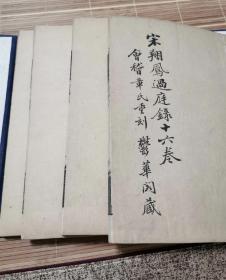 宋翔鳳過庭錄十六卷
會稽章氏重刻 鬱華閣藏